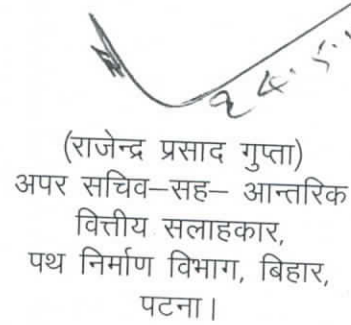 24.5.
(राजेन्द्र प्रसाद गुप्ता)
अपर सचिव–सह– आन्तरिक
वित्तीय सलाहकार,
पथ निर्माण विभाग, बिहार,
पटना।